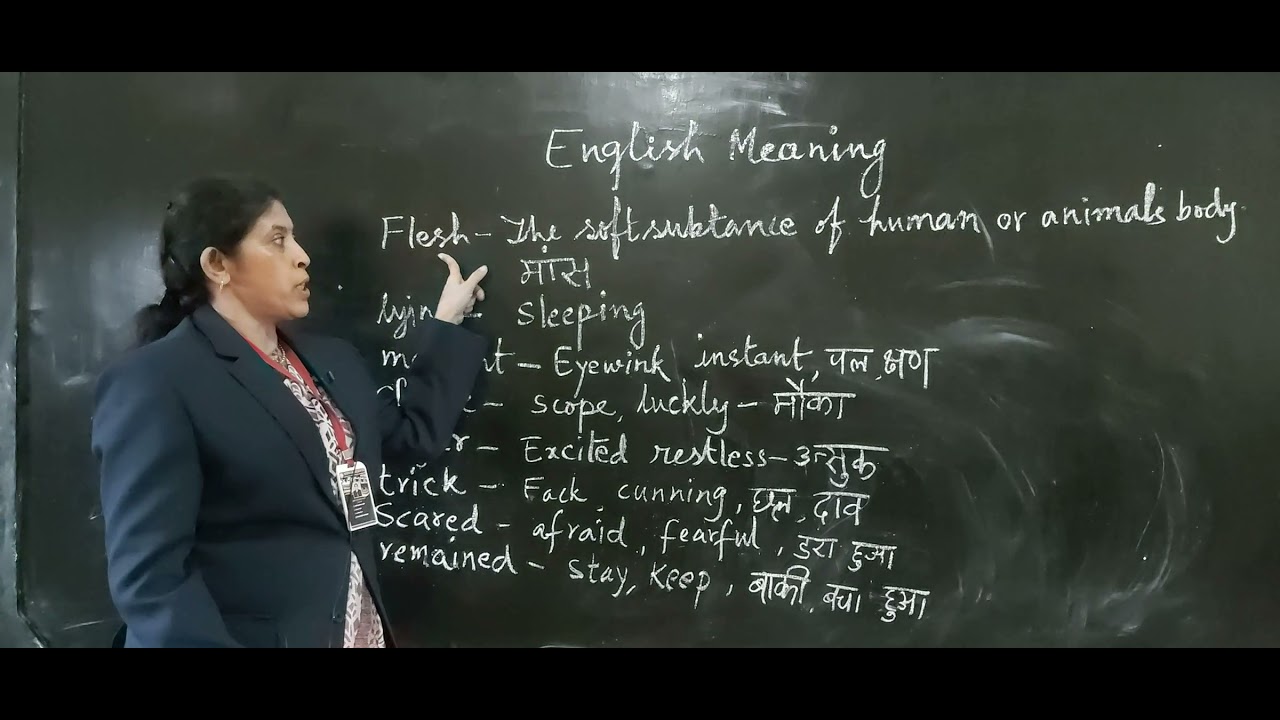 English Meaning
Flesh - The soft subtance of human or animals body.
मांस
lying - sleeping
- Eyewink instant, पल, क्षण
- scope, luckly - मौका
- Excited restless - उत्सुक
trick - Fack, cunning, छल, दाव
Scared - afraid, fearful, डरा हुआ
remained - stay, keep, बाकी, बचा हुआ